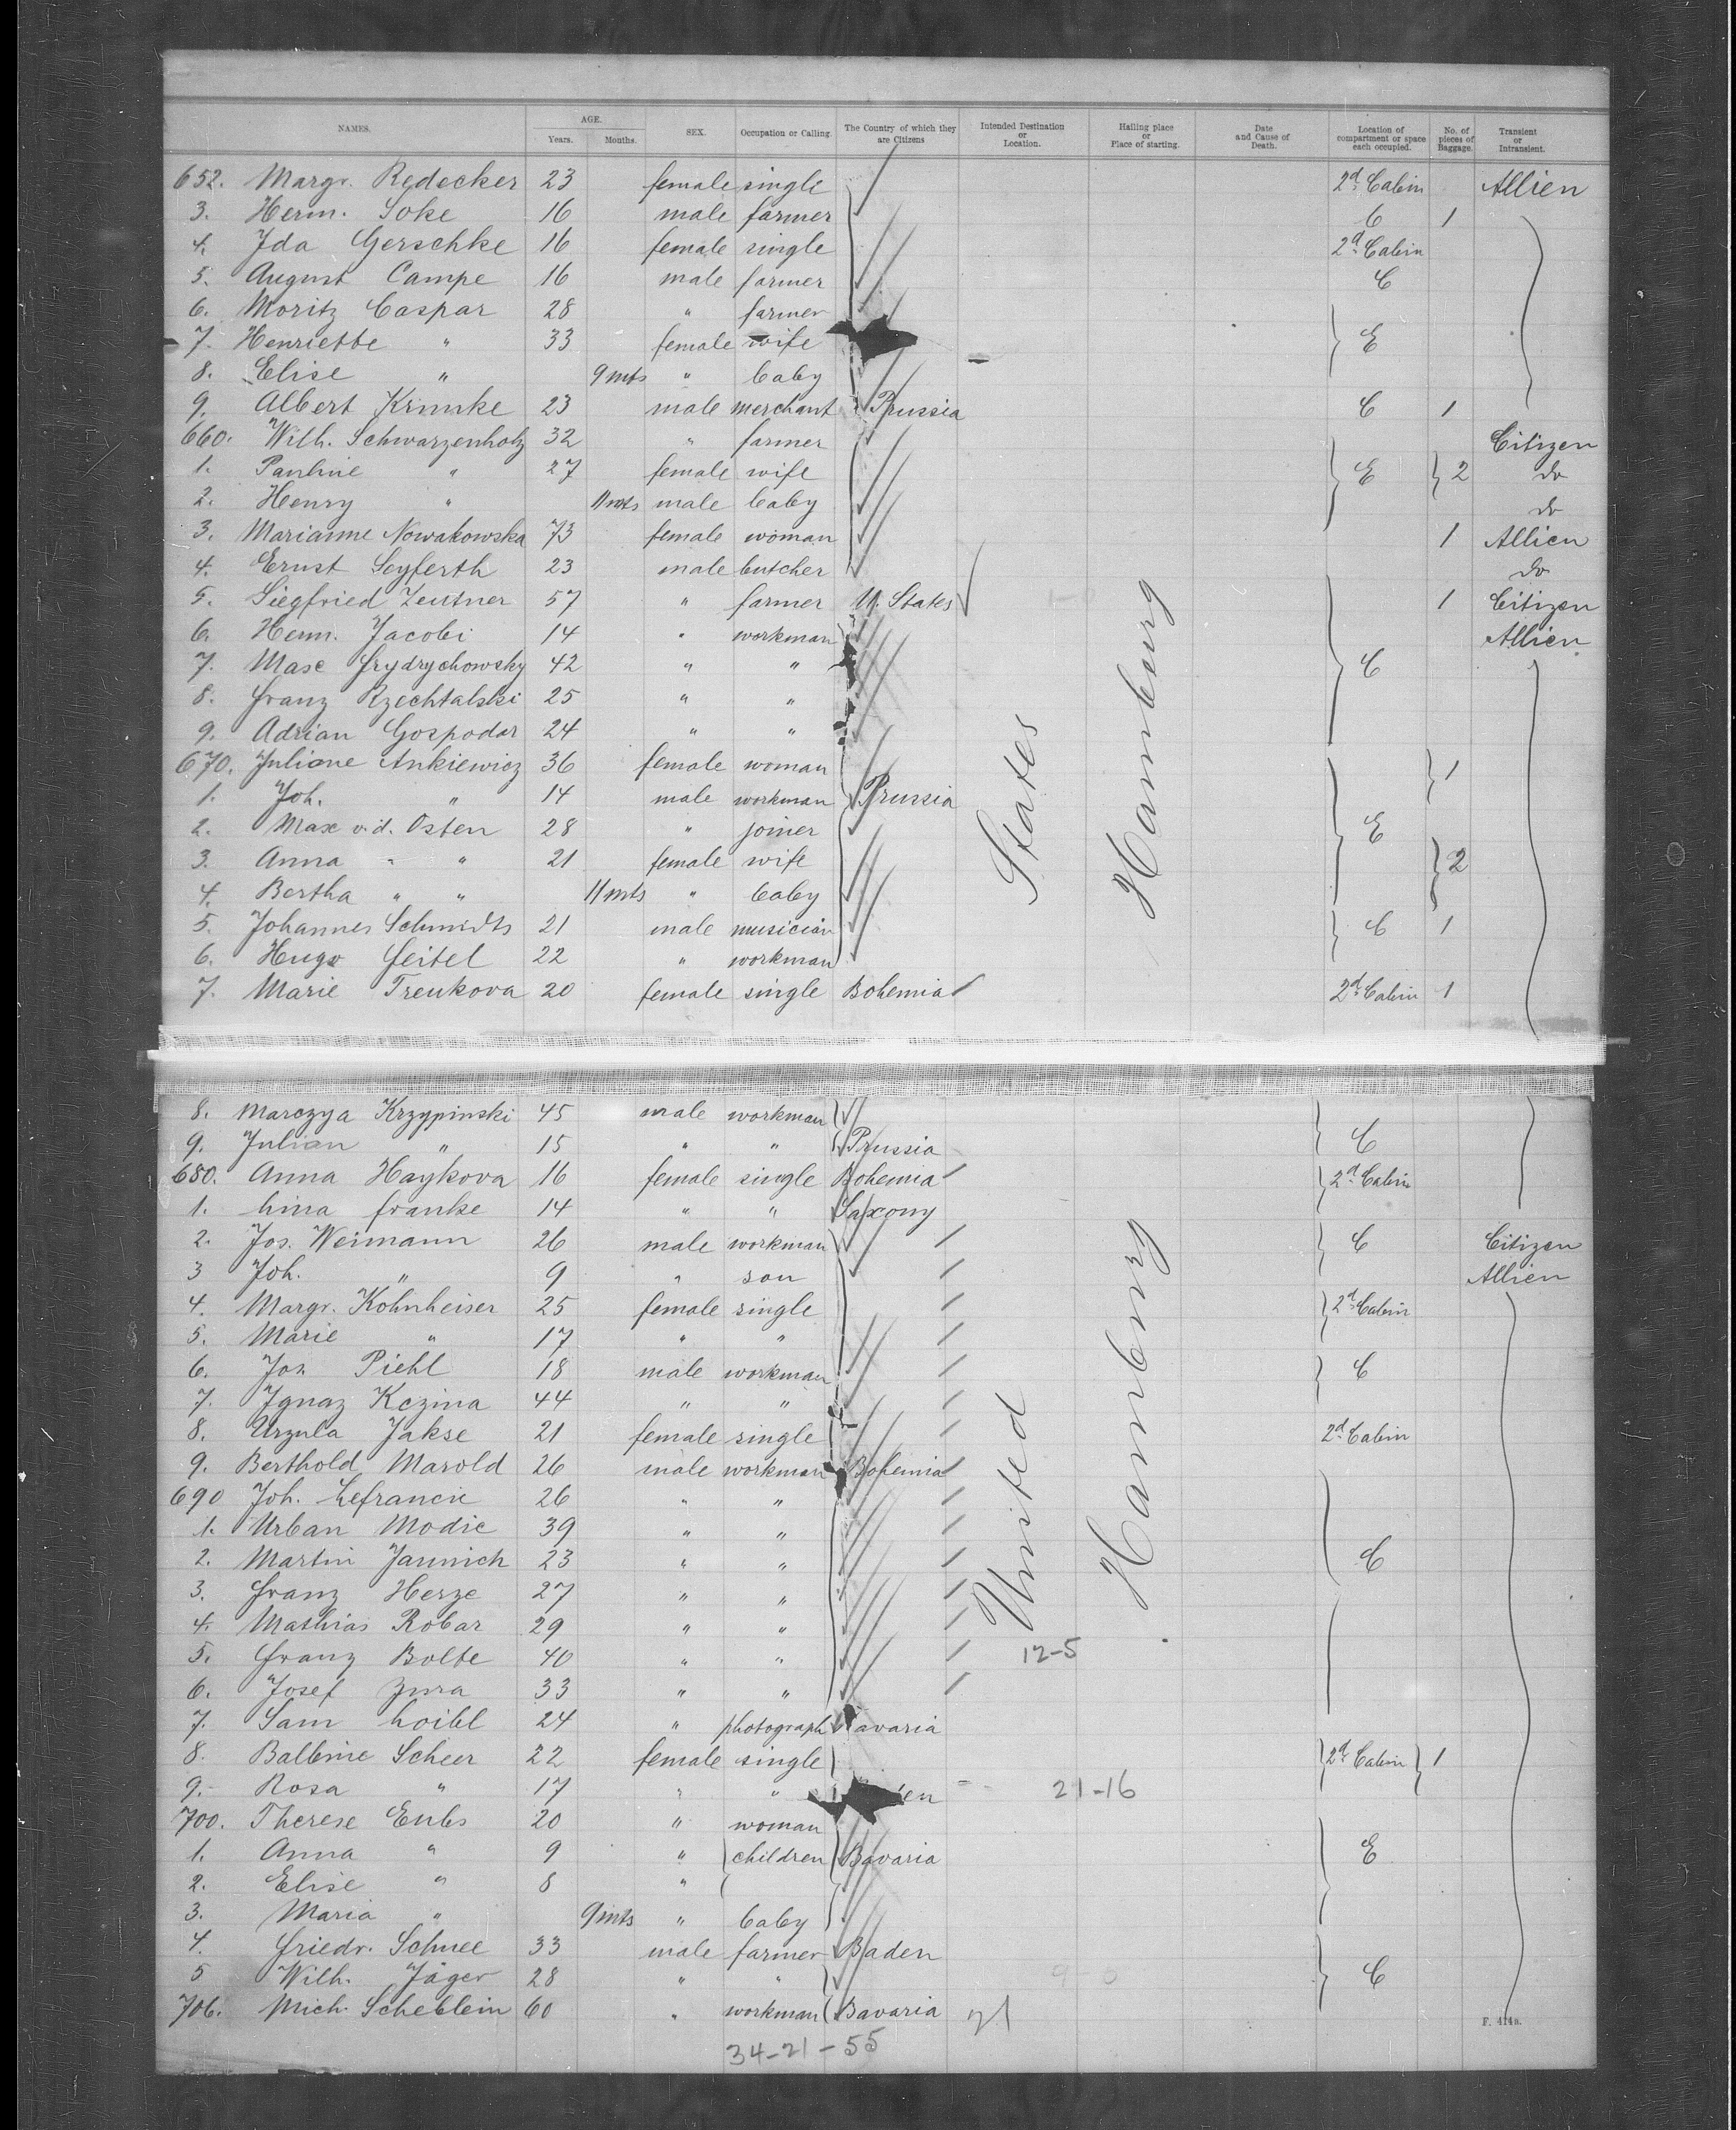 NAMES. AGE. Years. Months. SEX. Occupation or Calling. The Country of which they are Citizens Intended Destination or Location. Hailing place or Place of starting. Date and Cause of Death. Location of compartment or space each occupied. No. of pieces of Baggage. Transient or Intransient.
652. Margr. Redecker 23 female single 2d Cabin Allien
3. Herm. Soke 16 male farmer C 1
4. Ida Gerschke 16 female single 2d Cabin
5. August Campe 16 male farmer C
6. Moritz Caspar 28 " farmer
7. Henriette " 33 female wife E
8. Elise " 9 mts " baby
9. Albert Krimke 23 male merchant Prussia C 1
660. Wilh. Schwarzenholz 32 " farmer Citizen
1. Pauline " 27 female wife E 2 do
2. Henry " 11 mts male baby do
3. Marianne Nowakowska 73 female woman 1 Allien
4. Ernst Seyferth 23 male butcher do
5. Siegfried Zentner 57 " farmer U. States 1 Citizen
6. Herm. Jacobi 14 " workman Allien
7. Max Frydrychowsky 42 " " C
8. Franz Rzechtalski 25 " "
9. Adrian Gospodar 24 " "
670. Juliane Ankiewicz 36 female woman 1
1. Joh. " 14 male workman Prussia
2. Max v.d. Osten 28 " joiner E
3. Anna " " 21 female wife 2
4. Bertha " " 11 mts " baby
5. Johannes Schmidts 21 male musician C 1
6. Hugo Feitel 22 " workman
7. Marie Trenkova 20 female single Bohemia 2d Cabin 1
States
Hamburg
8. Marczya Krzypinski 45 male workman
9. Julian " 15 " " Prussia C
680. Anna Haykova 16 female single Bohemia 2d Cabin
1. Lina Franke 14 " " Saxony
2. Jos. Weimann 26 male workman C Citizen
3 Joh. " 9 " son Allien
4. Margr. Kohnheiser 25 female single 2d Cabin
5. Marie " 17 " "
6. Jos Piehl 18 male workman C
7. Ignaz Kozina 44 " "
8. Urzula Jakse 21 female single 2d Cabin
9. Berthold Marold 26 male workman Bohemia
690 Joh. Lefrancic 26 " "
1. Urban Modic 39 " "
2. Martin Jannich 23 " " C
3. Franz Herze 27 " "
4. Mathias Robar 29 " "
5. Franz Bolte 40 " " 12-5
6. Josef Zura 33 " "
7. Sam Loibl 24 " photograph Bavaria
8. Balbine Scheer 22 female single 2d Cabin 1
9. Rosa " 17 " " 21-16
700. Therese Eubs 20 " woman
1. Anna " 9 " children Bavaria E
2. Elise " 8 "
3. Maria " 9 mts " baby
4. Friedr. Schnee 33 male farmer Baden
5 Wilh. Jäger 28 " " C
706. Mich. Scheblein 60 " workman Bavaria
United
Hamburg
F. 414a.
34-21-55